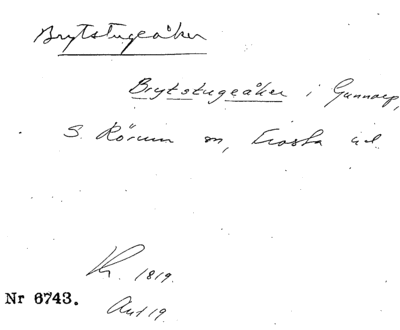 Brytstugeåker
Brytstugeåker i Gunnarp,
S. Rörum sn, Frosta hd
Kr. 1819.
Nr 6743.
Akt 19.